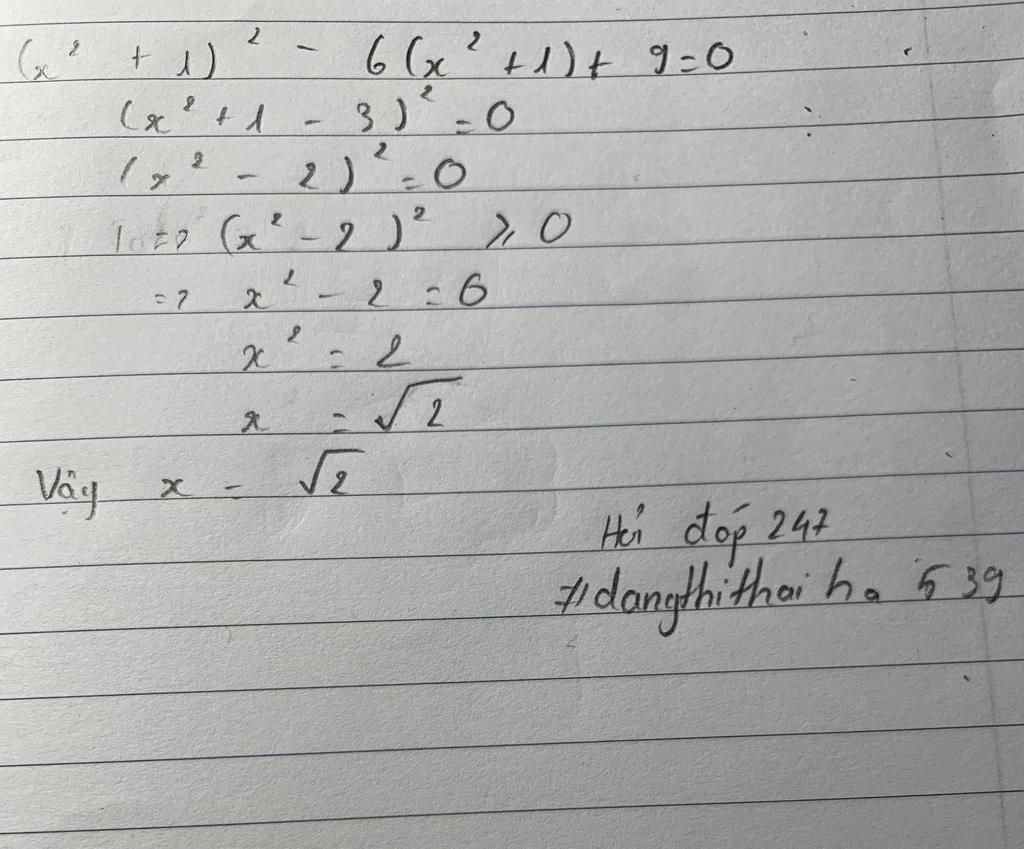 (x² + 1)² - 6(x² + 1) + 9 = 0
(x² + 1 - 3)² = 0
(x² - 2)² = 0
=> (x² - 2)² ⩾ 0
=> x² - 2 = 0
x² = 2
x = √2
Vậy x = √2
Hỏi đáp 247
dangthithaiha 539